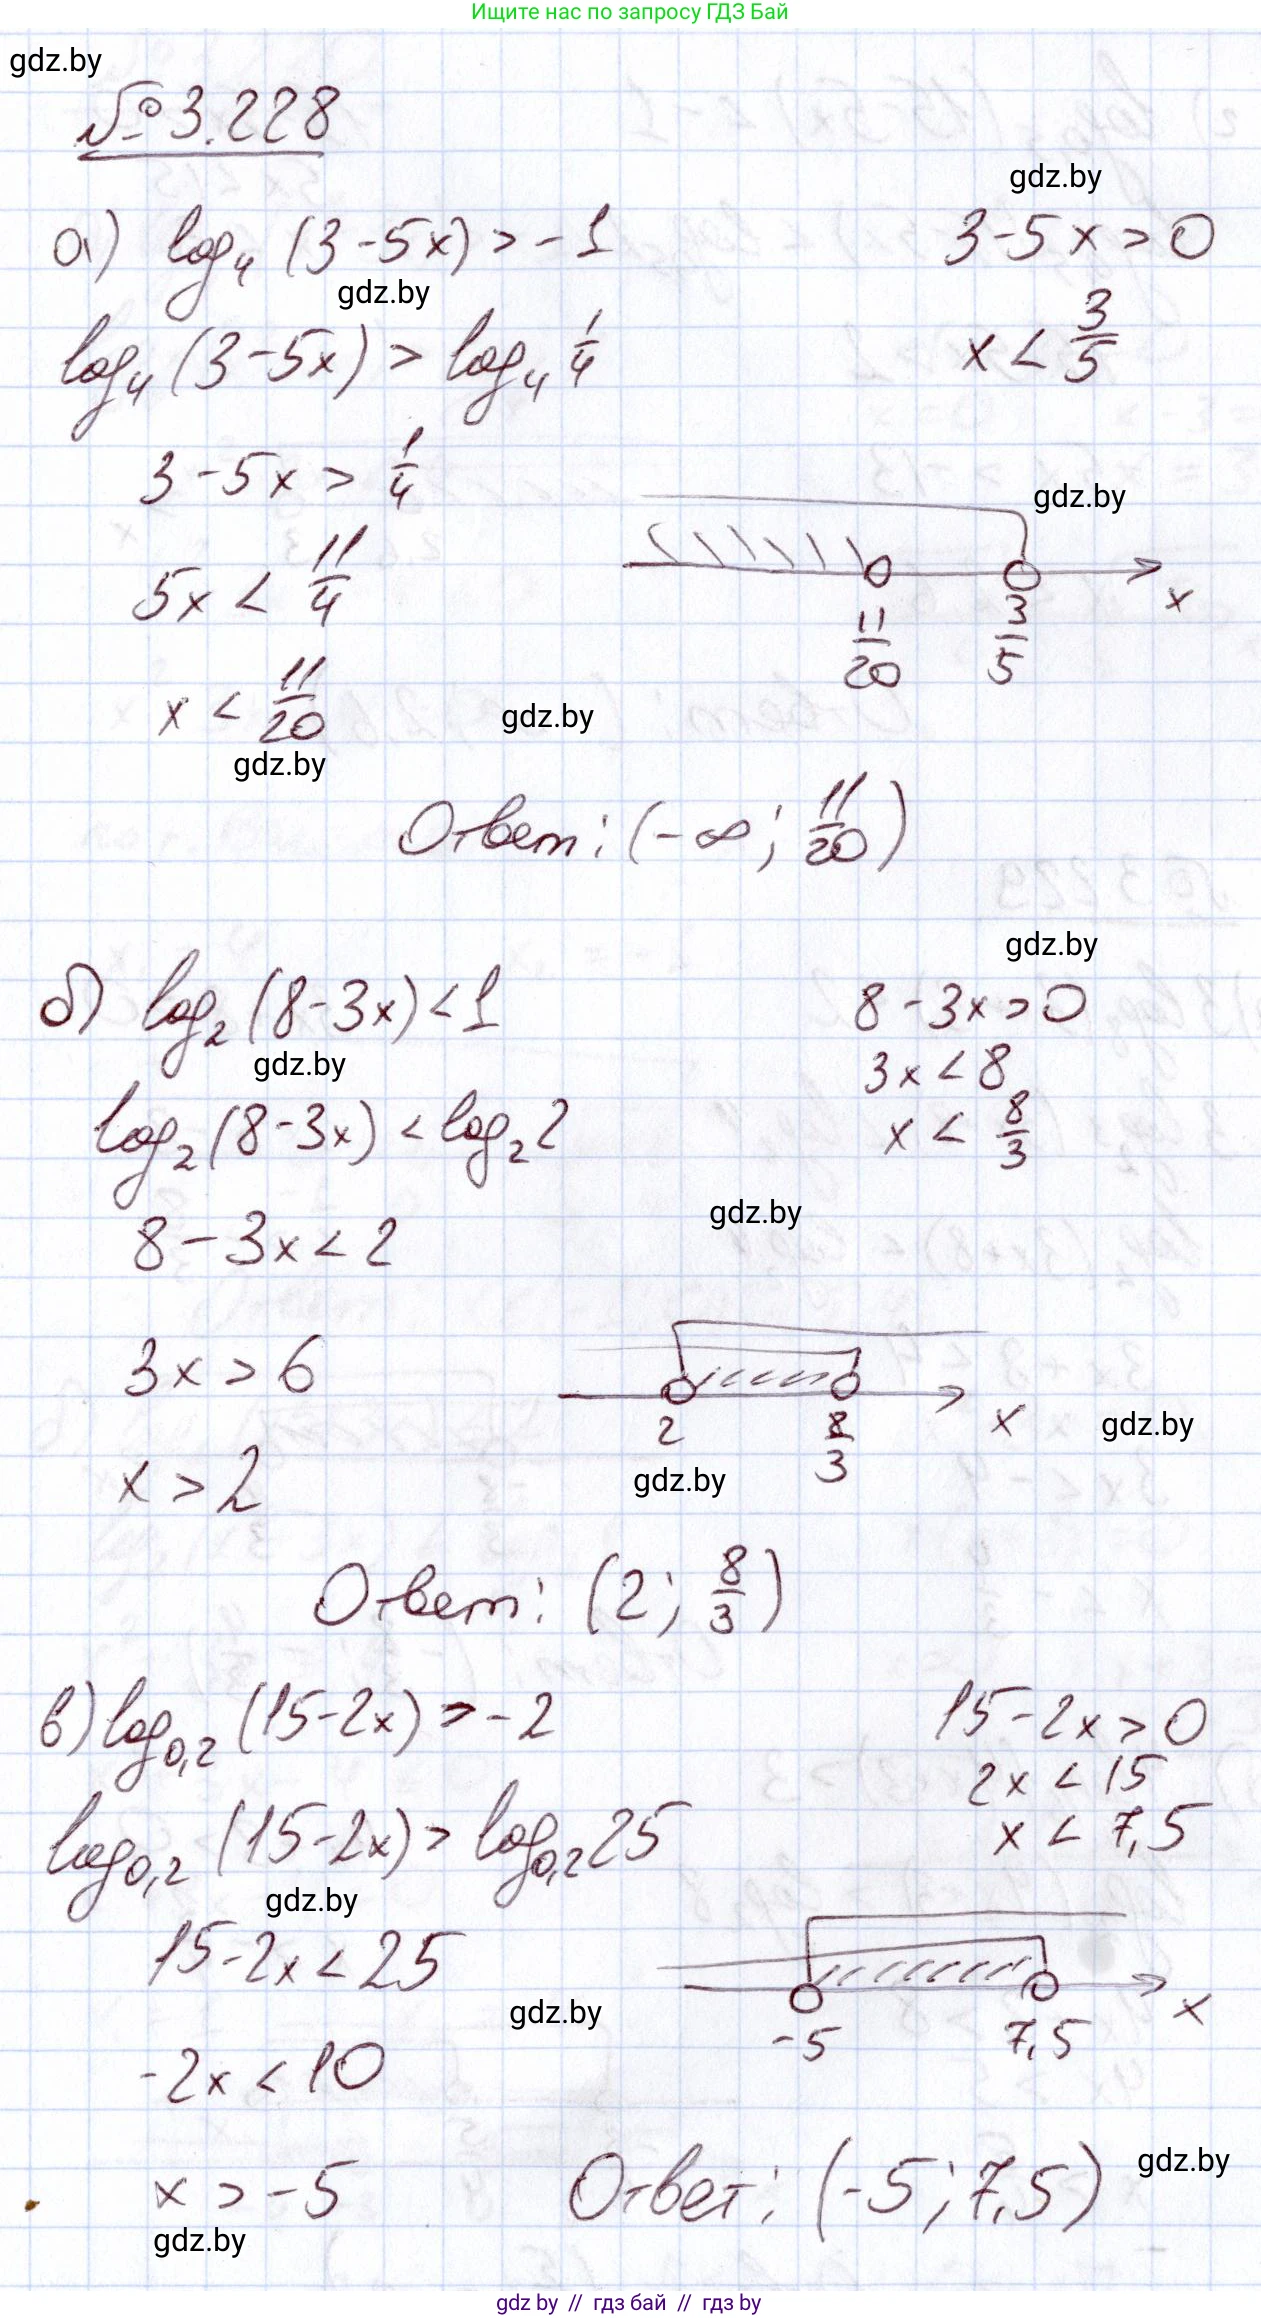 Ищите нас по запросу ГДЗ Бай
gdz.by
№ 3.228
gdz.by
а) log₄ (3-5x) > -1
3-5x > 0
gdz.by
log₄ (3-5x) > log₄ 1/4
x < 3/5
3-5x > 1/4
gdz.by
5x < 11/4
x
11/20
3/5
x < 11/20
gdz.by
gdz.by
Ответ: (-∞; 11/20)
gdz.by
б) log₂ (8-3x) < 1
8-3x > 0
gdz.by
3x < 8
log₂ (8-3x) < log₂ 2
x < 8/3
gdz.by
8-3x < 2
3x > 6
x
gdz.by
2
8/3
gdz.by
x > 2
Ответ: (2; 8/3)
в) log₀,₂ (15-2x) > -2
15-2x > 0
2x < 15
log₀,₂ (15-2x) > log₀,₂ 25
x < 7,5
gdz.by
15-2x < 25
gdz.by
x
-5
7,5
-2x < 10
gdz.by
x > -5
Ответ: (-5; 7,5)
gdz.by
gdz by // гдз бай // гдз by